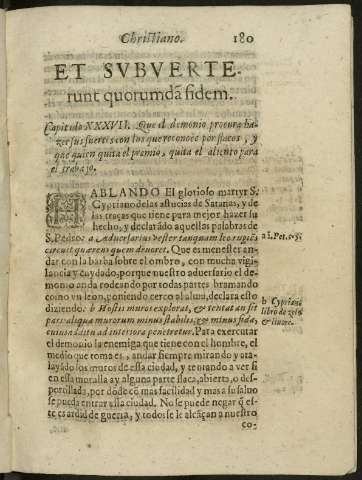 Christiano. 180
ET SVBVERTE-
runt quorumdã fidem.
Capitulo XXXVII. Que el demonio procura ha-
zer sus suertes con los que reconoce por flacos, y
que quien quita el premio, quita el aliento para
el trabajo.
HABLANDO El glorioso martyr S.
Cypriano de las astucias de Satanas, y de
las traças que tiene para mejor hazer su
hecho, y declarãdo aquellas palabras de
S. Pedro: a Aduersarius vester tanquam leo rugiẽs
circuit quærens quem deuoret. Que es menester an-
dar con la barba sobre el ombro, con mucha vigi-
lancia y cuydado, porque nuestro aduersario el de-
monio anda rodeando por todas partes bramando
como vn leon, poniendo cerco al alma, declara esto
diziendo. b Hostis muros explorat, & tentat an sit
pars aliqua murorum minus stabilis, & minus fida,
cuius aditu ad interiora penetretur. Para executar
el demonio la enemiga que tiene con el hombre, el
medio que toma es, andar siempre mirando y ata-
layãdo los muros de esta ciudad, y tentando a ver si
en esta muralla ay alguna parte flaca, abierta, o des-
portillada, por dõde cõ mas facilidad y mas a su saluo
se pueda entrar essa ciudad. No se puede negar q̃ es-
te es ardid de guerra, y todos se le alcãçan a nuestro
co-
a I. Pet. c. 5.
b Cypria.
libro de zelo
& liuore.